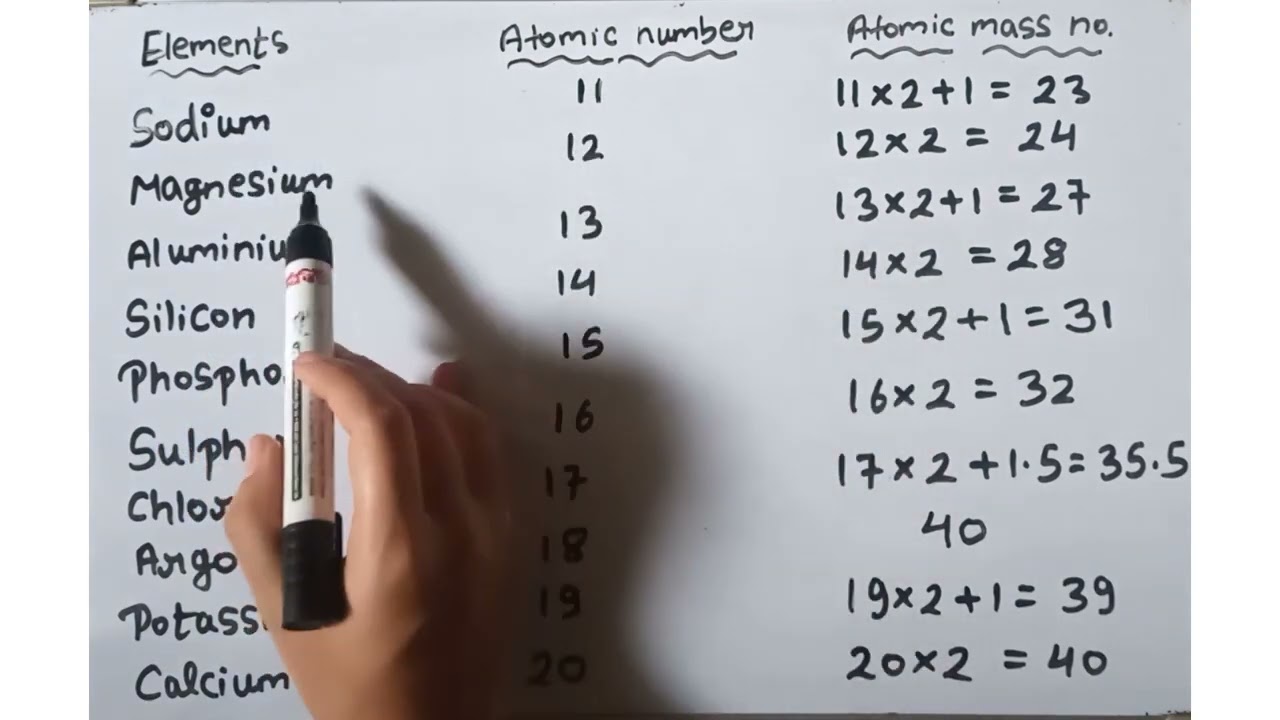 Elements Atomic number Atomic mass no.
Sodium 11 11×2+1 = 23
Magnesium 12 12×2 = 24
Aluminiu 13 13×2+1 = 27
Silicon 14 14×2 = 28
Phospho 15 15×2+1 = 31
Sulph 16 16×2 = 32
Chlor 17 17×2+1.5=35.5
Argo 18 40
Potass 19 19×2+1 = 39
Calcium 20 20×2 = 40